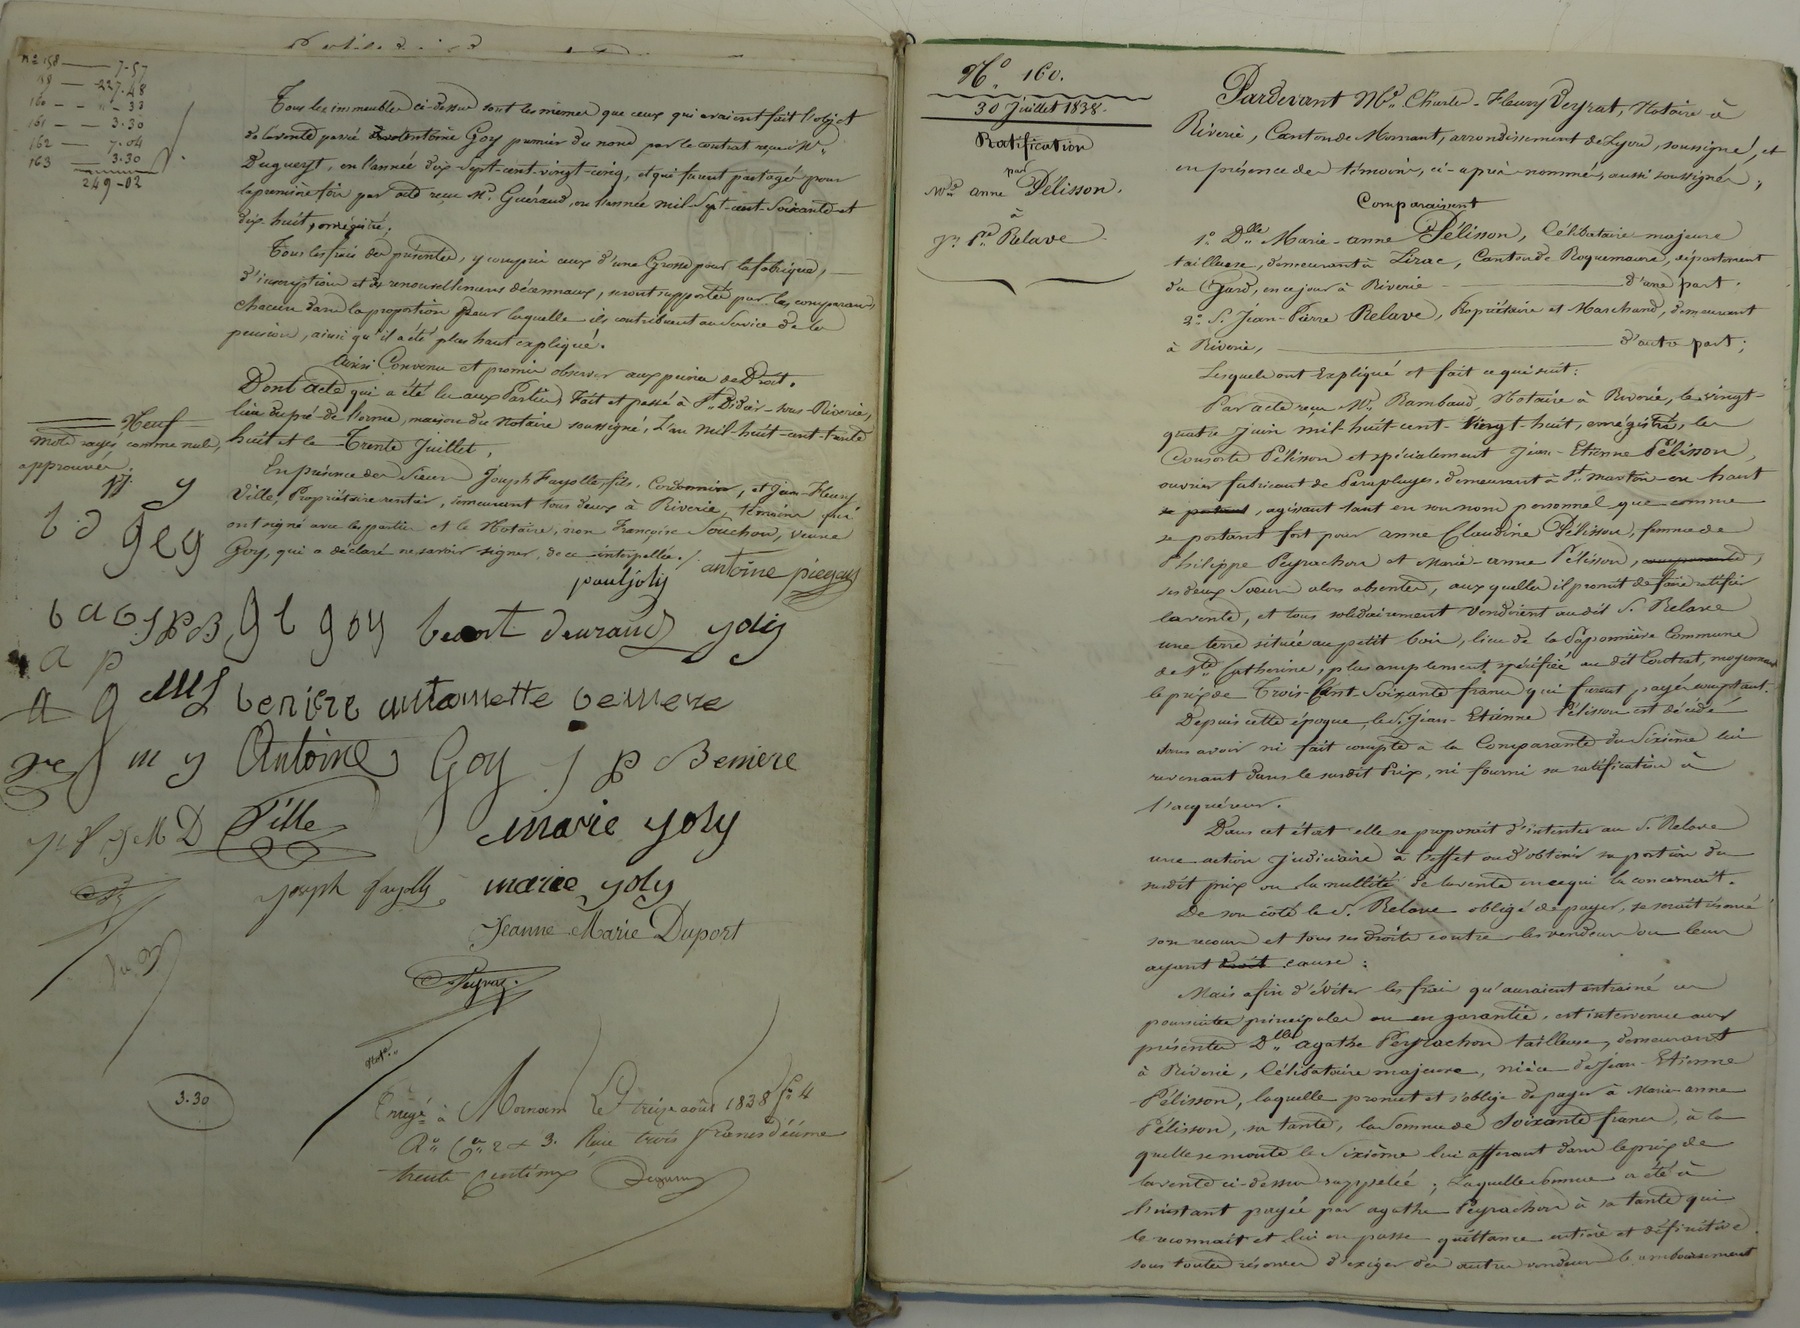 n° 158 — 7-57
159 — 227.48
160 — " - 33
161 — 3.30
162 — 7.04
163 — 3.30
249-02
Tous les immeubles ci-dessus sont les mêmes que ceux qui avaient fait l'objet
de la vente passée Antoine Goy premier du nom par le contrat reçu Me
Dugueyt, en l'année dix-sept-cent-vingt-cinq, et qui furent partagés pour
la première fois par acte reçu Me Guéraud, en l'année mil-sept-cent-soixante et
dix huit, enrégistré.
Tous les frais des présentes, y compris ceux d'une Grosse pour la fabrique,
d'inscription et de renouvellemens décennaux, seront supportés par les comparans,
chacun dans la proportion pour laquelle ils contribuent au service de la
pension, ainsi qu'il a été plus haut expliqué.
Ainsi Convenu et promis observer aux peines de Droit.
Dont Acte qui a été lu aux Parties, Fait et passé à St Didier-sous-Riverie,
lieu du pré-de l'orme, maison du Notaire soussigné, L'an Mil-huit-cent-trente
huit et le Trente Juillet,
Neuf
mots rayés comme nuls,
approuvés.
En présence des Sieurs Joseph Fayolle, fils, Cordonnier, et Jean-Fleury
Ville, Propriétaire rentier, demeurant tous deux à Riverie, témoins qui
ont signé avec les parties et le Notaire, non Françoise Souchon, veuve
Goy, qui a déclaré ne savoir signer, de ce interpellée./.
paul joly antoine piegay
b.d g e g
b a b J P B g l goy benoit deuraud joly
a p
a g MS beniere antoinette beniere
m y Antoine Goy j p Beniere
J M D Ville marie joly
joseph fayolle marie joly
Jeanne Marie Duport
Peyrat.
3.30
Enregé à Mornant Le treize août 1838 fo 4
Ro Ces 2 & 3. Reçu trois francs dixième
trente Centimes
No 160.
30 Juillet 1838.
Ratification
par
anne Pélisson.
à
Jn Pre Relave
Pardevant Me Charles-Fleury Peyrat, Notaire à
Riverie, Canton de Mornant, arrondissement de Lyon, soussigné, et
en présence des témoins, ci-après nommés, aussi soussignés,
Comparaissent
1° Dlle Marie-anne Pélisson, Célibataire majeure
tailleuse, demeurant à Lirac, Canton de Roquemaure, département
du Gard, en ce jour à Riverie — d'une part.
2° S. Jean-Pierre Relave, Propriétaire et Marchand, demeurant
à Riverie, — d'autre part;
Lesquels ont Expliqué et fait ce qui suit:
Par acte reçu Me Rambaud Notaire à Riverie, le vingt-
quatre Juin mil-huit-cent-Vingt-huit, enrégistré, les
Consorts Pélisson et spécialement Jean-Etienne Pélisson,
ouvrier fabricant de Parapluyes, demeurant à St martin-en haut
, agissant tant en son nom personnel que comme
se portant fort pour anne Claudine Pélisson, femme de
Philippe Peyrachon et Marie-anne Pélisson, comparante,
ses deux sœurs alors absentes, aux quelles il promit de faire ratifier
la vente, et tous solidairement Vendoient audit S. Relave
une terre située au petit bois, lieu de la Saponnière Commune
de Ste Catherine, plus amplement spécifiée au dit Contrat, moyennant
le prix de Trois-Cent-Soixante francs qui furent payés comptant.
Depuis cette époque, le S. Jean-Etienne Pélisson est décédé
sans avoir ni fait compte à la Comparante du Sixième lui
revenant dans le susdit Prix, ni fourni sa ratification à
l'acquéreur.
Dans cet état elle se proposait d'intenter au S. Relave
une action Judiciaire à l'effet ou d'obtenir sa portion du
susdit prix ou la nullité de la vente en ce qui la concernait.
De son côté le S. Relave obligé de payer, se serait réservé
son recours et tous ses droits contre les vendeurs ou leurs
ayant droit cause:
Mais afin d'éviter les frais qu'auraient entrainé ces
poursuites principales ou en garantie, est intervenue aux
présentes Dlle agathe Peyrachon tailleuse, demeurant
à Riverie, Célibataire majeure, nièce de Jean-Etienne
Pélisson, laquelle promet et s'oblige de payer à Marie-anne
Pélisson, sa tante, la Somme de Soixante francs, à la
quelle se monte le Sixième lui afférant dans le prix de
la vente ci-dessus rappelée; Laquelle somme a été à
l'instant payée par agathe Peyrachon à sa tante qui
le reconnait et lui en passe quittance entière et définitive
sous toutes réserves d'exiger des autres vendeurs le remboursement